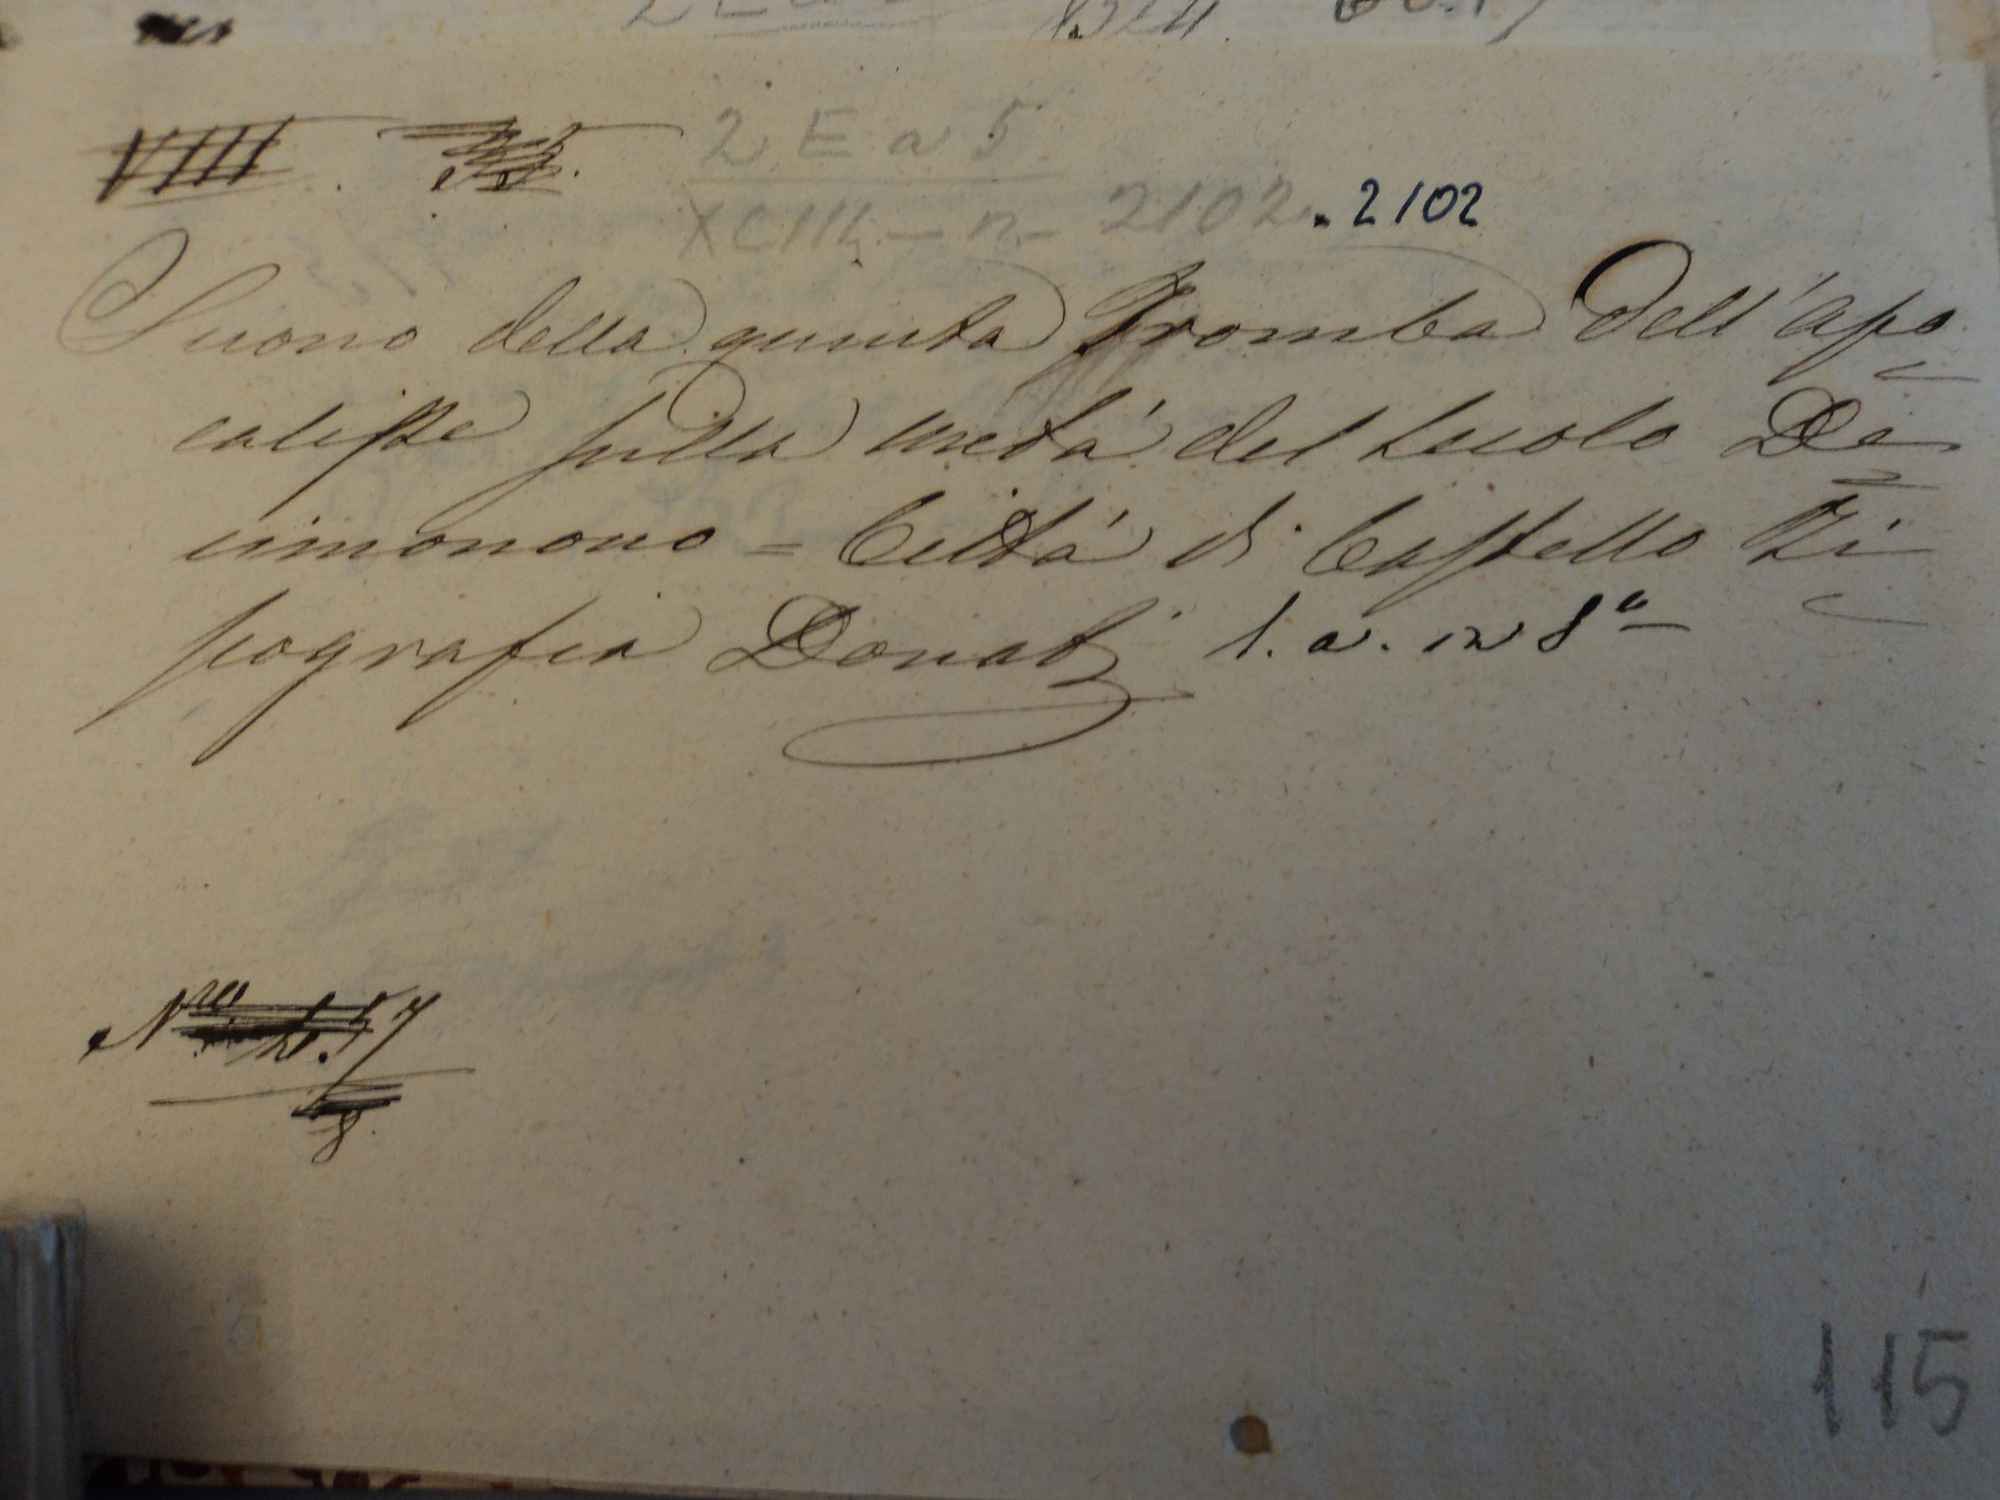 VIIII.
2 E a 5
XCIII - n - 2102 . 2102
Suono della quinta Tromba dell'Apo
calisse sulla metà del Secolo De
cimonono = Città di Castello Ti
pografia Donati s. a. in 8°
115